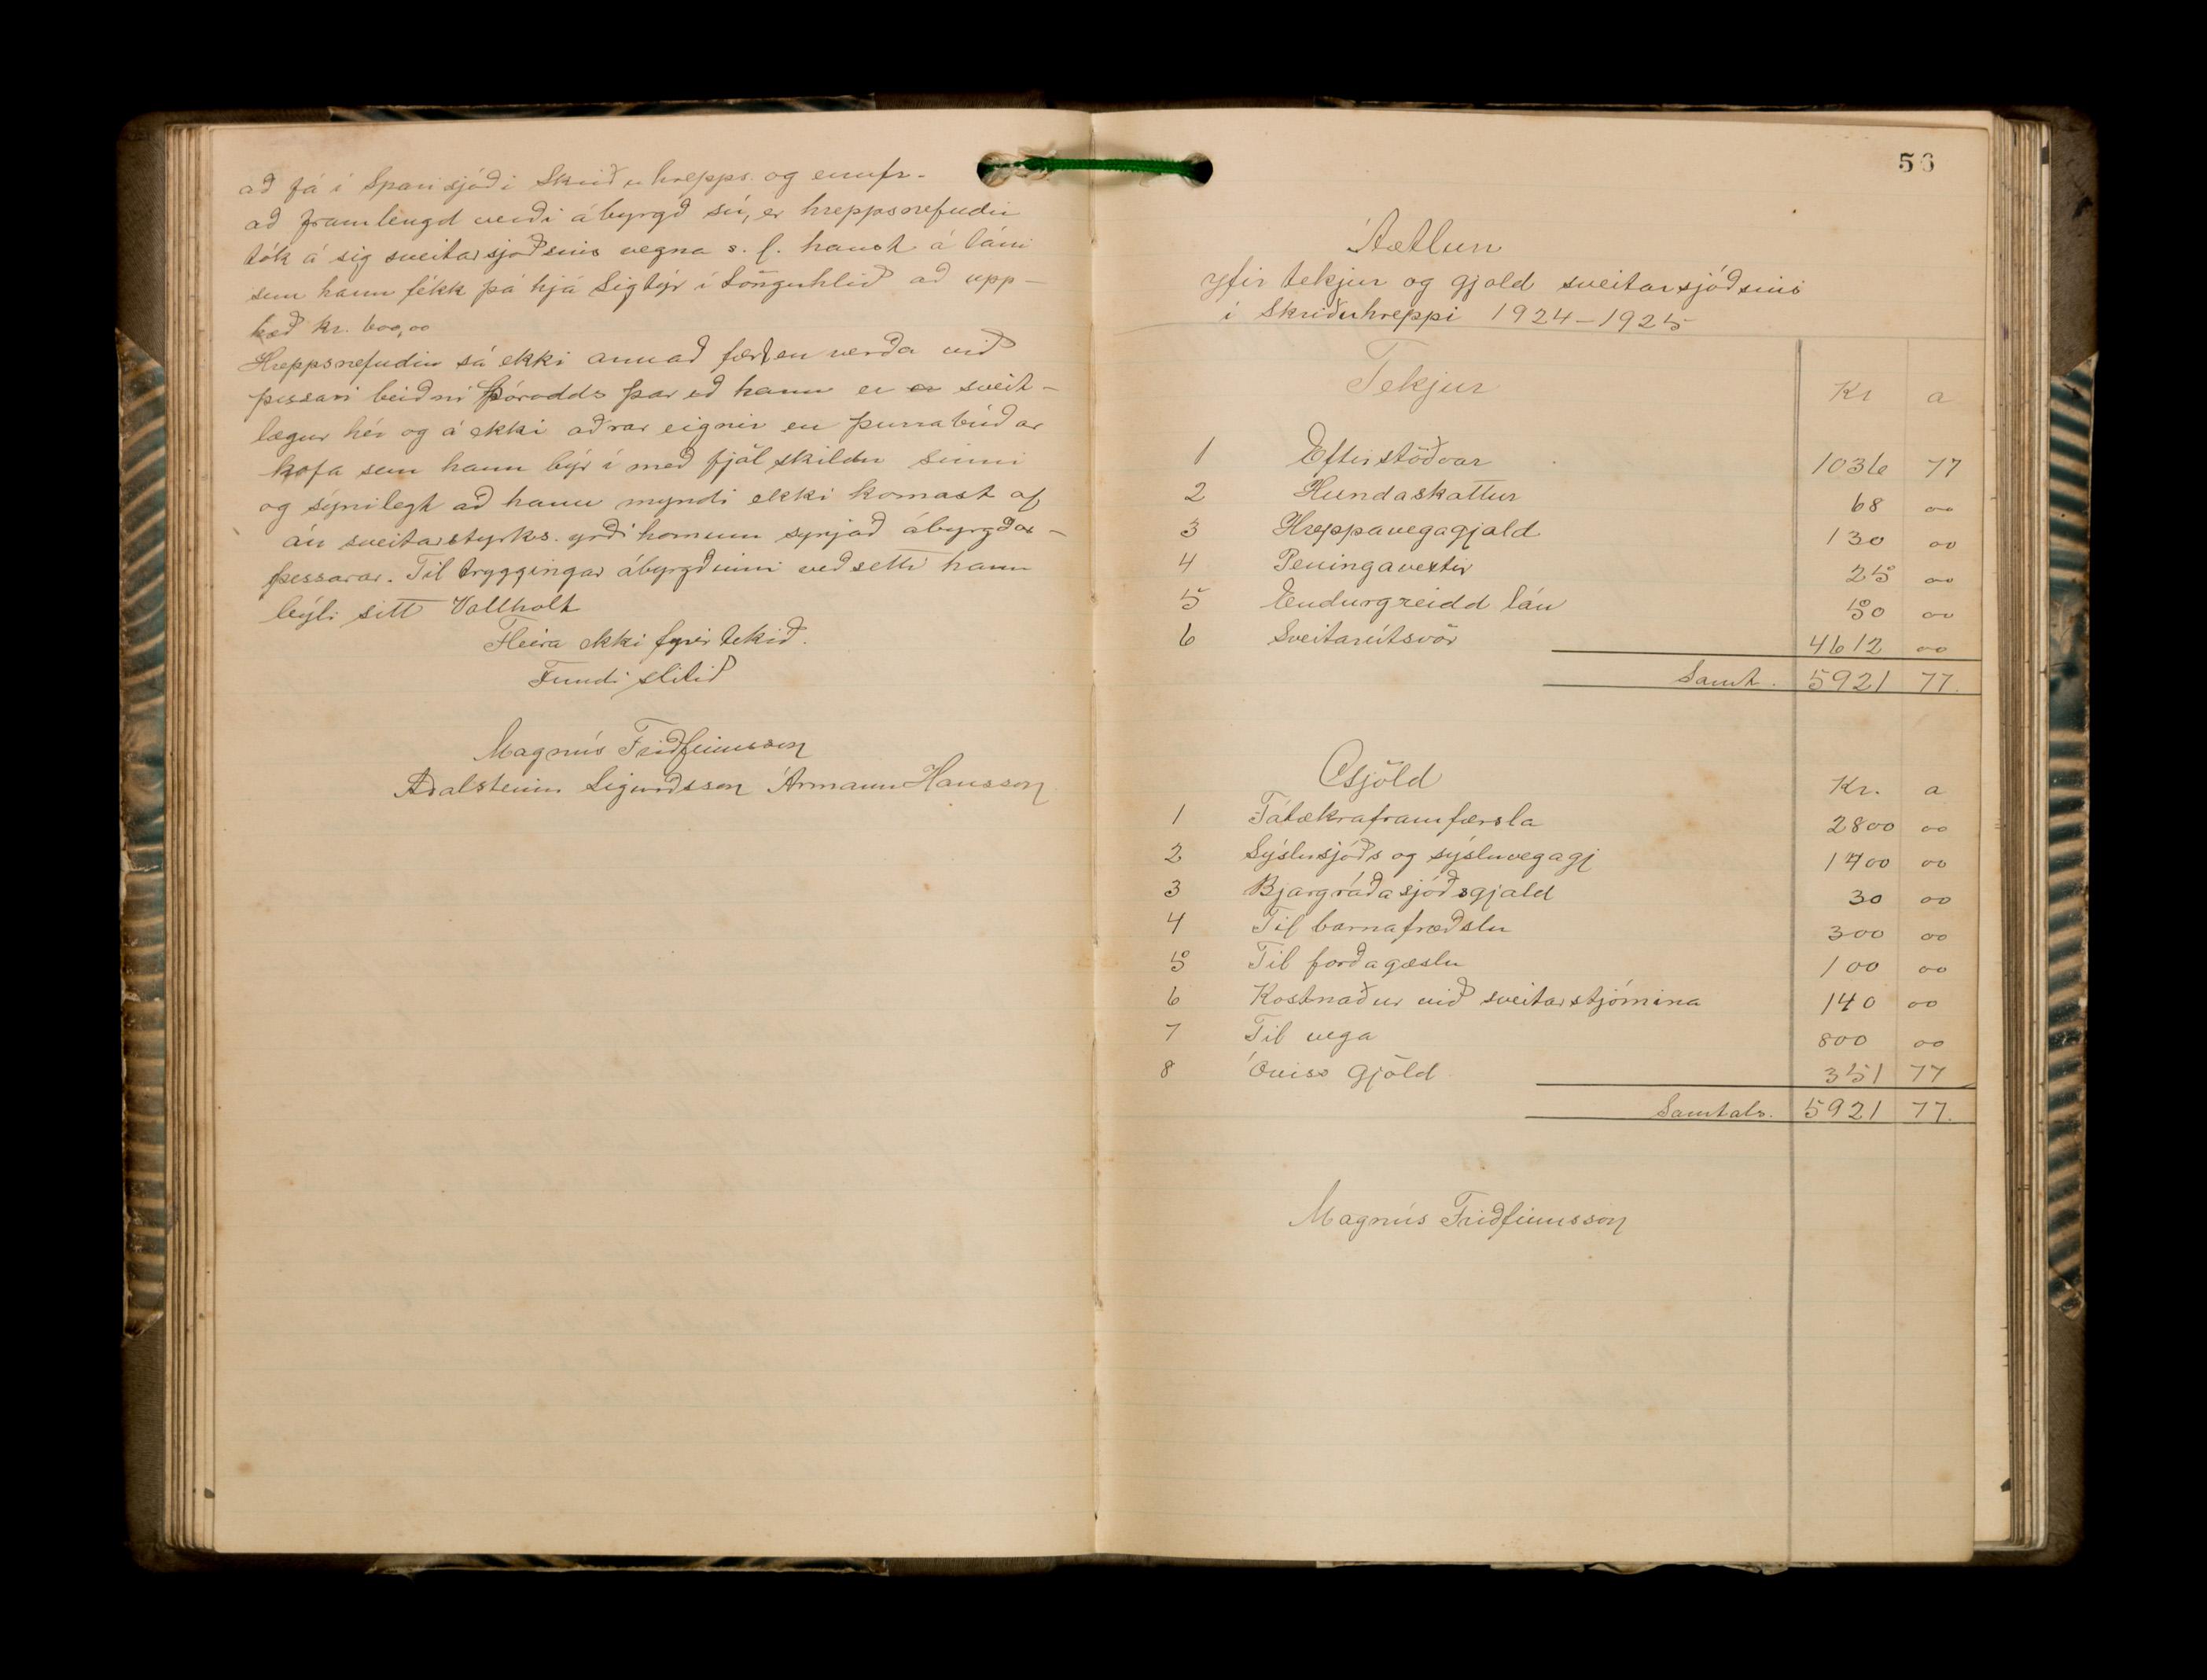 að fá í Sparisjóði Skriðuhrepps. og ennfr-
að framlengd verði ábyrgð sú, er hreppsnefndin
tók á sig sveitarsjóðsins vegna s. l. haust á láni
sem hann fékk þá hjá Sigtýr í Lönguhlíð að upp-
hæð kr. 600,00
Hreppsnefndin sá ekki annað fært en verða við
þessari beiðni Þórodds þar eð hann er er sveit-
lægur hér og á ekki aðrar eignir en þurrabúðar
kofa sem hann býr í með fjölskildu sinni
og sýnilegt að hann myndi ekki komast af
án sveitarstyrks. yrði honum synjað ábyrgðar-
þessarar. Til tryggingar ábyrgðinni veðsetti hann
býli sitt Vallholt
Fleira ekki fyrir tekið.
Fundi slitið
Magnús Friðfinnsson
Aðalsteinn Sigurðsson Ármann Hansson
56
Áætlun
yfir tekjur og gjold sveitarsjóðsins
í Skriðuhreppi 1924-1925
Tekjur Kr a
1 Eftirstöðvar 1036 77
2 Hundaskattur 68 00
3 Hreppavegagjald 130 00
4 Peningavextir 25 00
5 Endurgreidd lán 50 00
6 Sveitarútsvör 4612 00
Samt. 5921 77.
Gjöld Kr. a
1 Fátækraframfærsla 2800 00
2 Sýslusjóðs og sýsluvegagj 1400 00
3 Bjargráðasjóðsgjald 30 00
4 Til barnafræðslu 300 00
5 Til forðagæslu 100 00
6 Kostnaður við sveitarstjórnina 140 00
7 Til vega 800 00
8 Óviss gjöld 351 77
Samtals. 5921 77.
Magnús Friðfinnsson